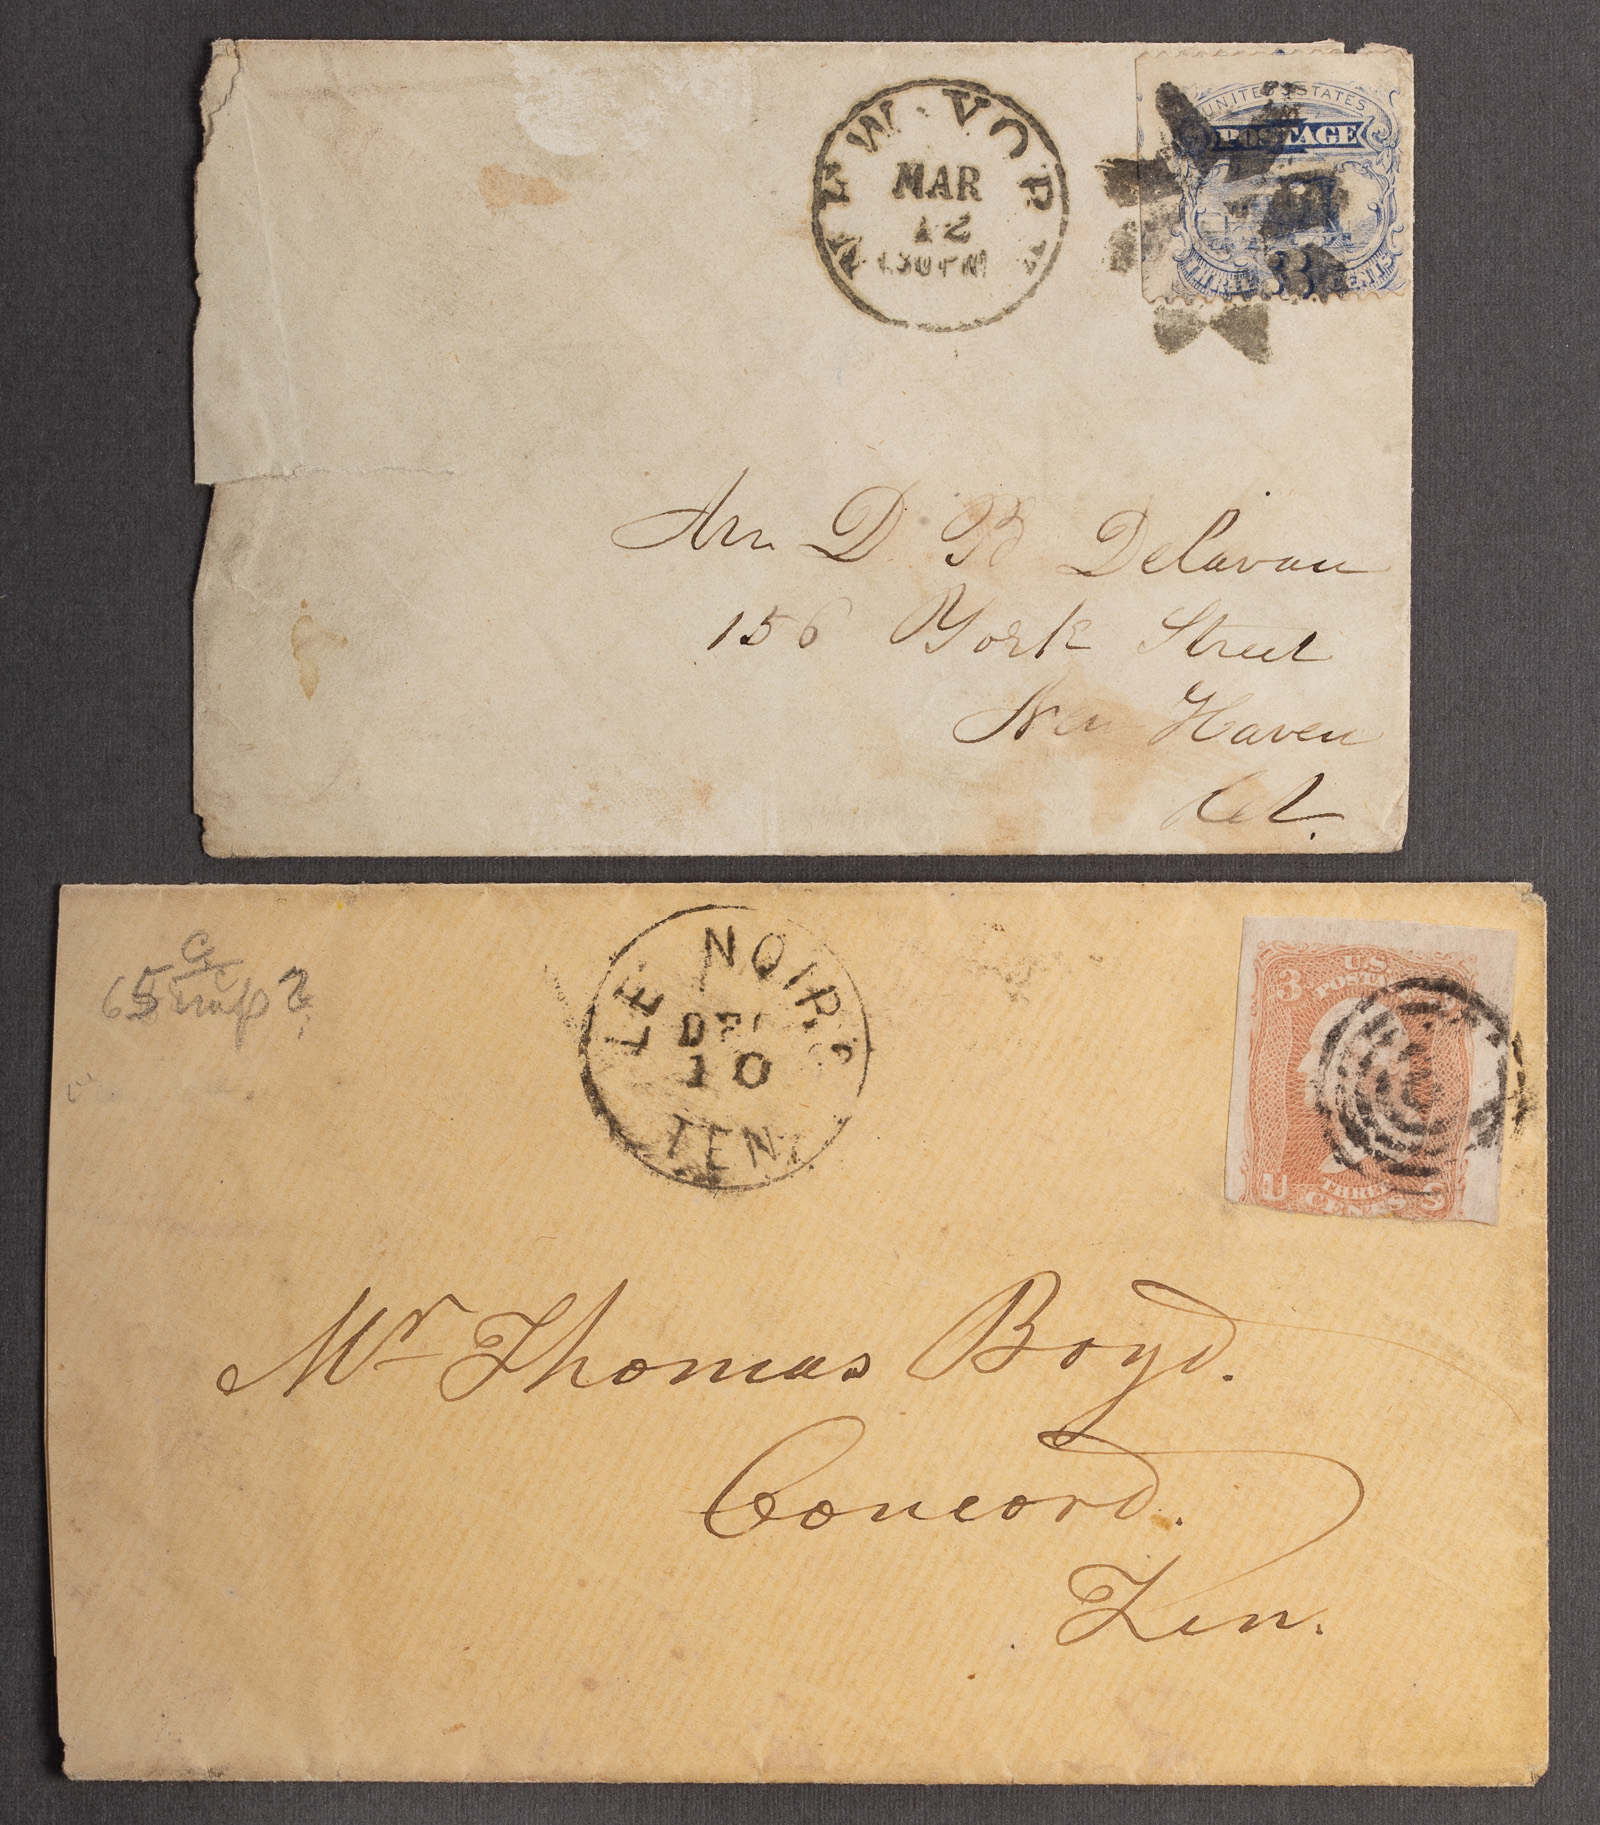 NEW YORK
MAR
12
1.30 PM
UNITED STATES
POSTAGE
THREE 3 CENTS
D B Delavan
156 York Street
New Haven
Ct.
65
LE NOIR'S
DEC
10
TEN.
3 U.S.
POSTAGE
THREE
U CENTS S
Mr Thomas Boyd.
Concord.
Ten.